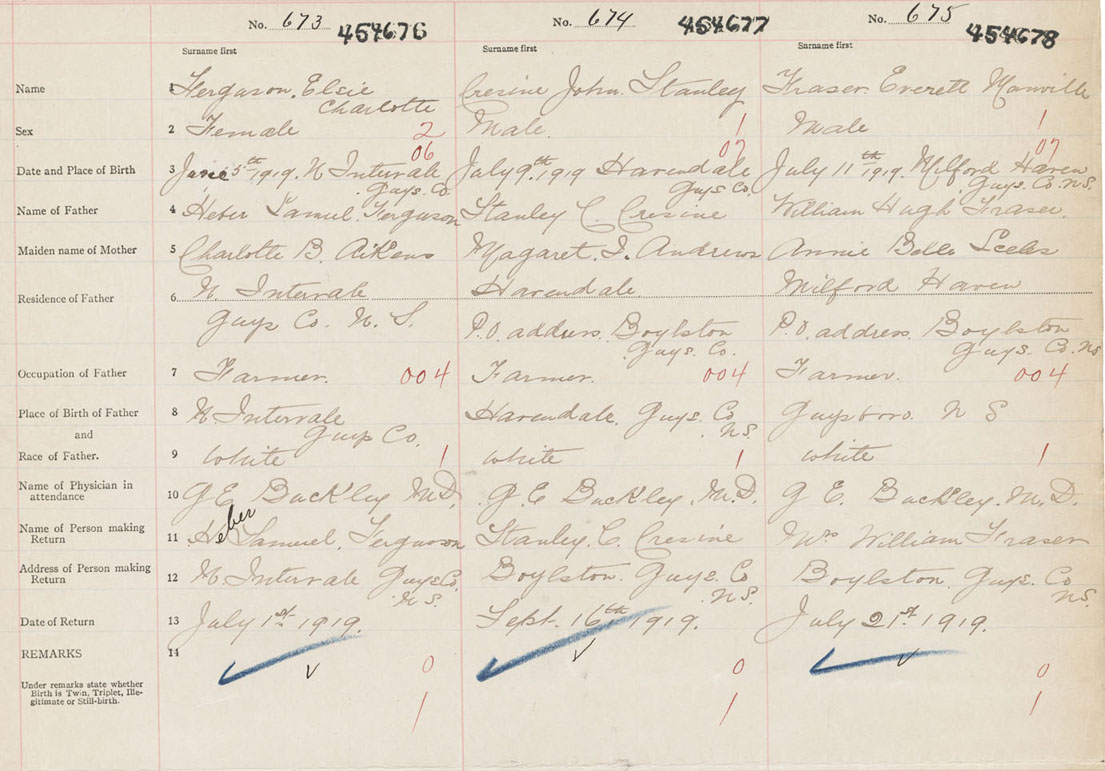 No. 673 454676 No. 674 454677 No. 675 454678
Surname first Surname first Surname first
Name 1 Ferguson, Elsie Cresine John Stanley Fraser Everett Manville
Charlotte
Sex 2 Female 2 Male. 1 Male 1
06 07 07
Date and Place of Birth 3 June 5th 1919. N Intervale July 9th 1919 Havendale July 11th 1919. Milford Haven
Guys. Co Guys Co. Guys. Co. N.S.
Name of Father 4 Heber Samuel Ferguson Stanley C. Cresine William Hugh Fraser.
Maiden name of Mother 5 Charlotte B. Aikens Magaret. I. Andrews Annie Belle
Residence of Father 6 N Intervale Havendale. Milford Haven
Guys Co. N. S. P.O. address. Boylston P.O. address. Boylston
Guys. Co. Guys. Co. NS
Occupation of Father 7 Farmer. 004 Farmer. 004 Farmer. 004
Place of Birth of Father 8 N Intervale Havendale. Guys. Co Guysboro. N S
and Guys Co. NS.
Race of Father. 9 White 1 White 1 White 1
Name of Physician in
attendance 10 G E Buckley M.D. G. E Buckley. M.D. G E. Buckley. M.D.
Name of Person making
Return 11 Heber Samuel. Ferguson Stanley. C. Cresine Mrs William Fraser
Address of Person making
Return 12 N. Intervale Guys Co, Boylston. Guys. Co Boylston. Guys. Co
N.S. NS. NS.
Date of Return 13 July 1st 1919. Sept. 16th 1919. July 21st 1919.
REMARKS 14
0 0 0
Under remarks state whether
Birth is Twin, Triplet, Ille-
gitimate or Still-birth.
1 1 1